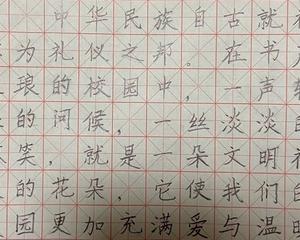 中华民族自古就
为礼仪之邦。在书
琅的校园中,一声
的问候,一丝淡淡
笑,就是一朵文明
的花朵,它使我们
园更加充满爱与温